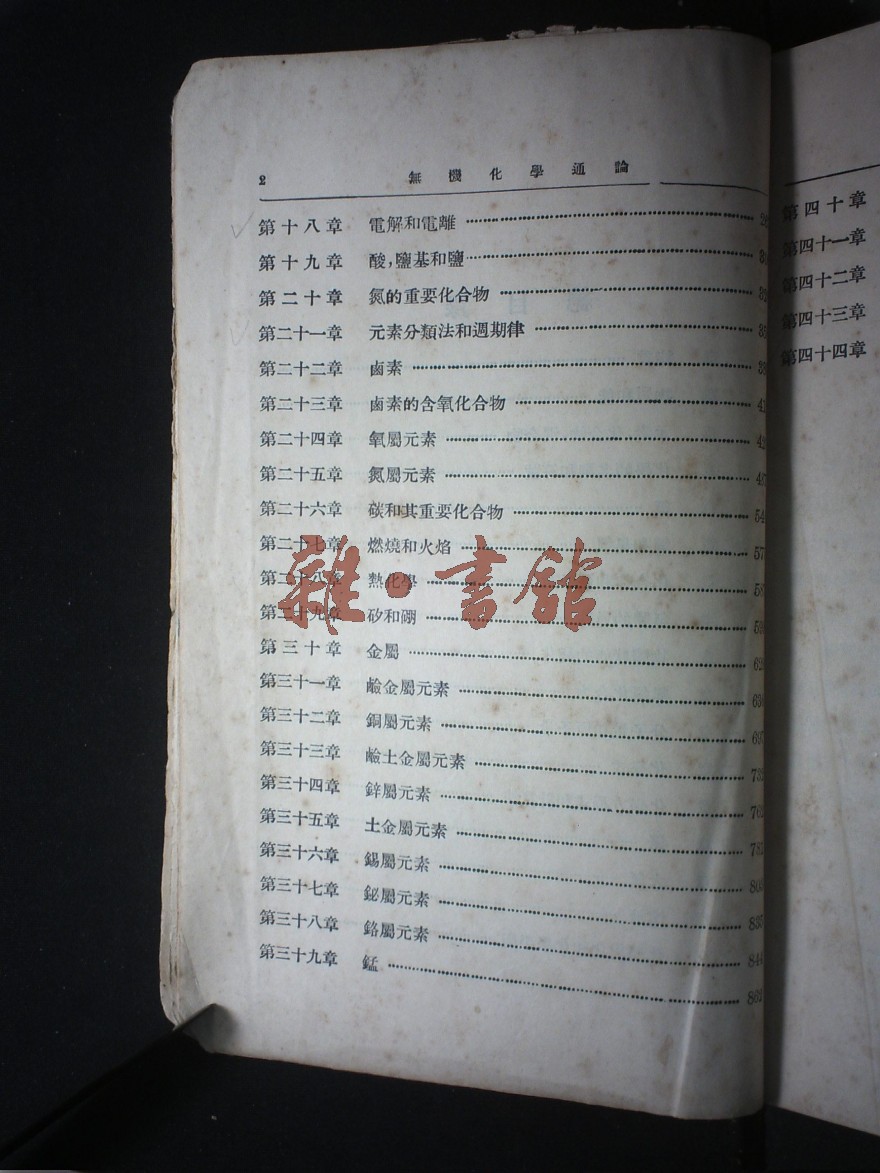 2 無機化學通論
第十八章 電解和電離
第十九章 酸，鹽基和鹽
第二十章 氮的重要化合物
第二十一章 元素分類法和週期律
第二十二章 鹵素
第二十三章 鹵素的含氧化合物
第二十四章 氧屬元素
第二十五章 氮屬元素
第二十六章 碳和其重要化合物
第二十七章 燃燒和火焰
第二十八章 熱化學
第二十九章 矽和硼
第三十章 金屬
第三十一章 鹼金屬元素
第三十二章 銅屬元素 697
第三十三章 鹼土金屬元素
第三十四章 鋅屬元素
第三十五章 土金屬元素
第三十六章 錫屬元素
第三十七章 鉍屬元素 837
第三十八章 鉻屬元素 844
第三十九章 錳 862
第四十章
第四十一章
第四十二章
第四十三章
第四十四章
雜·書館